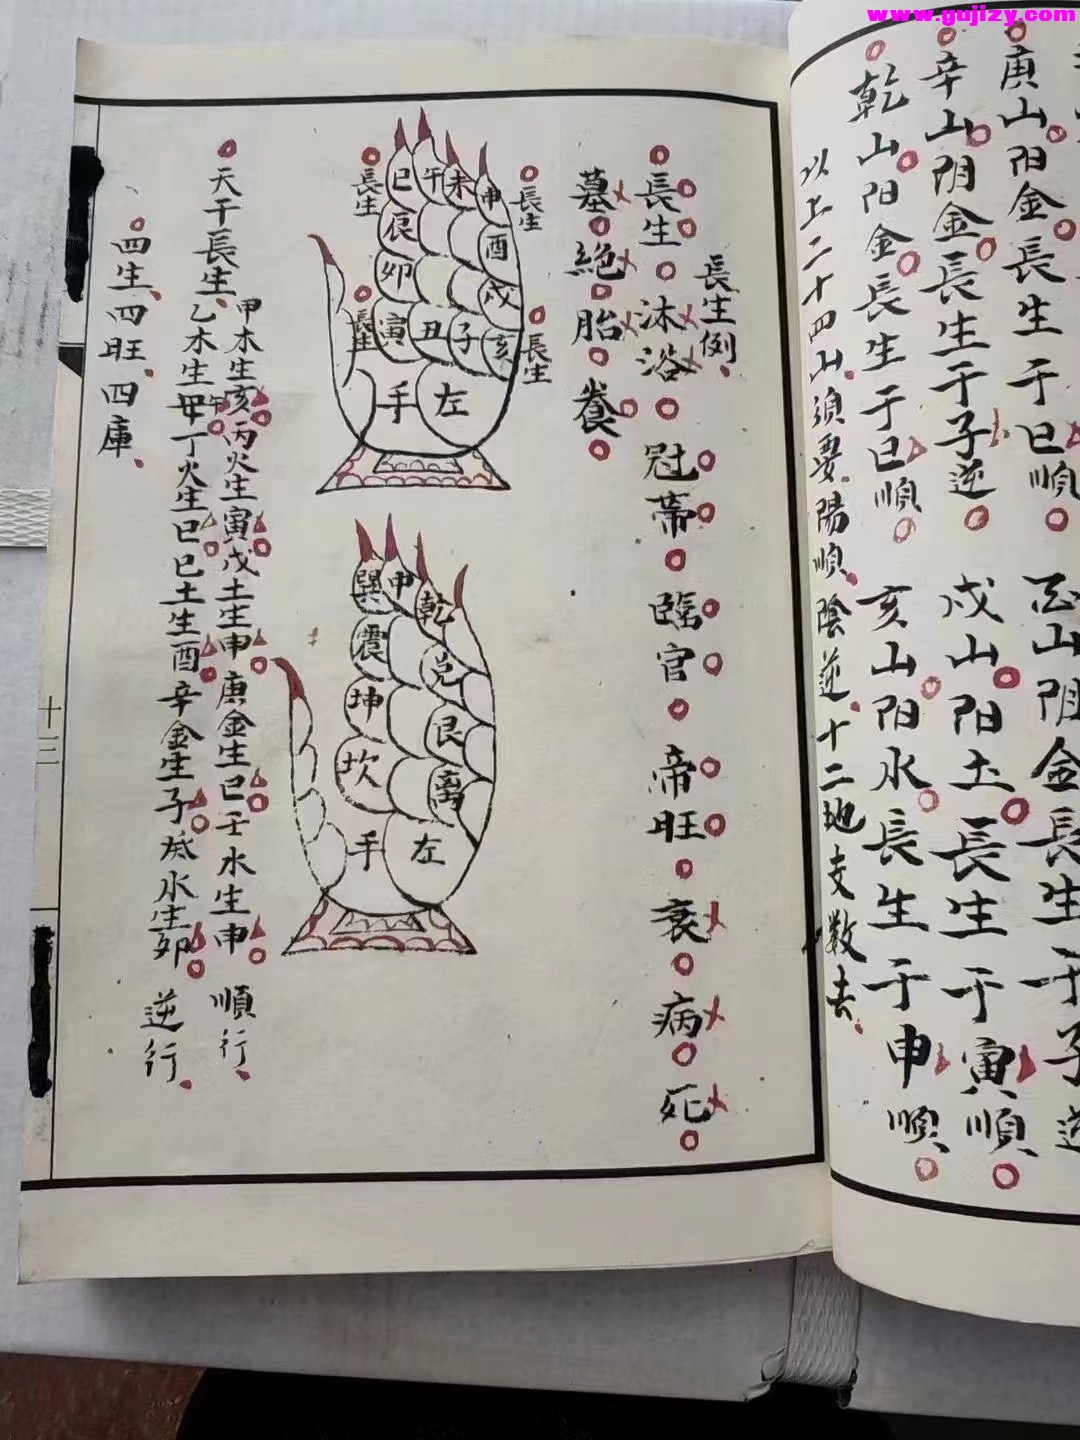 www.gujizy.com
庚山阳金長生于巳順
辛山阴金長生于子逆
戌山阳土長生于寅順
乾山阳金長生于巳順
亥山阳水長生于申順
以上二十四山須要陽順陰逆十二地支數去
長生例
長生 沐浴 冠帶 臨官 帝旺 衰 病 死
墓 絕 胎 養
長生
長生
長生
長生
巳 午 未 申
辰 酉
卯 戌
寅 丑 子 亥
左手
巽 中 乾
震 兌
坤 艮
坎 离
左手
天干長生
甲木生亥丙火生寅戊土生申庚金生巳壬水生申 順行
乙木生午丁火生巳巳土生酉辛金生子癸水生卯 逆行
四生四旺四庫
十三